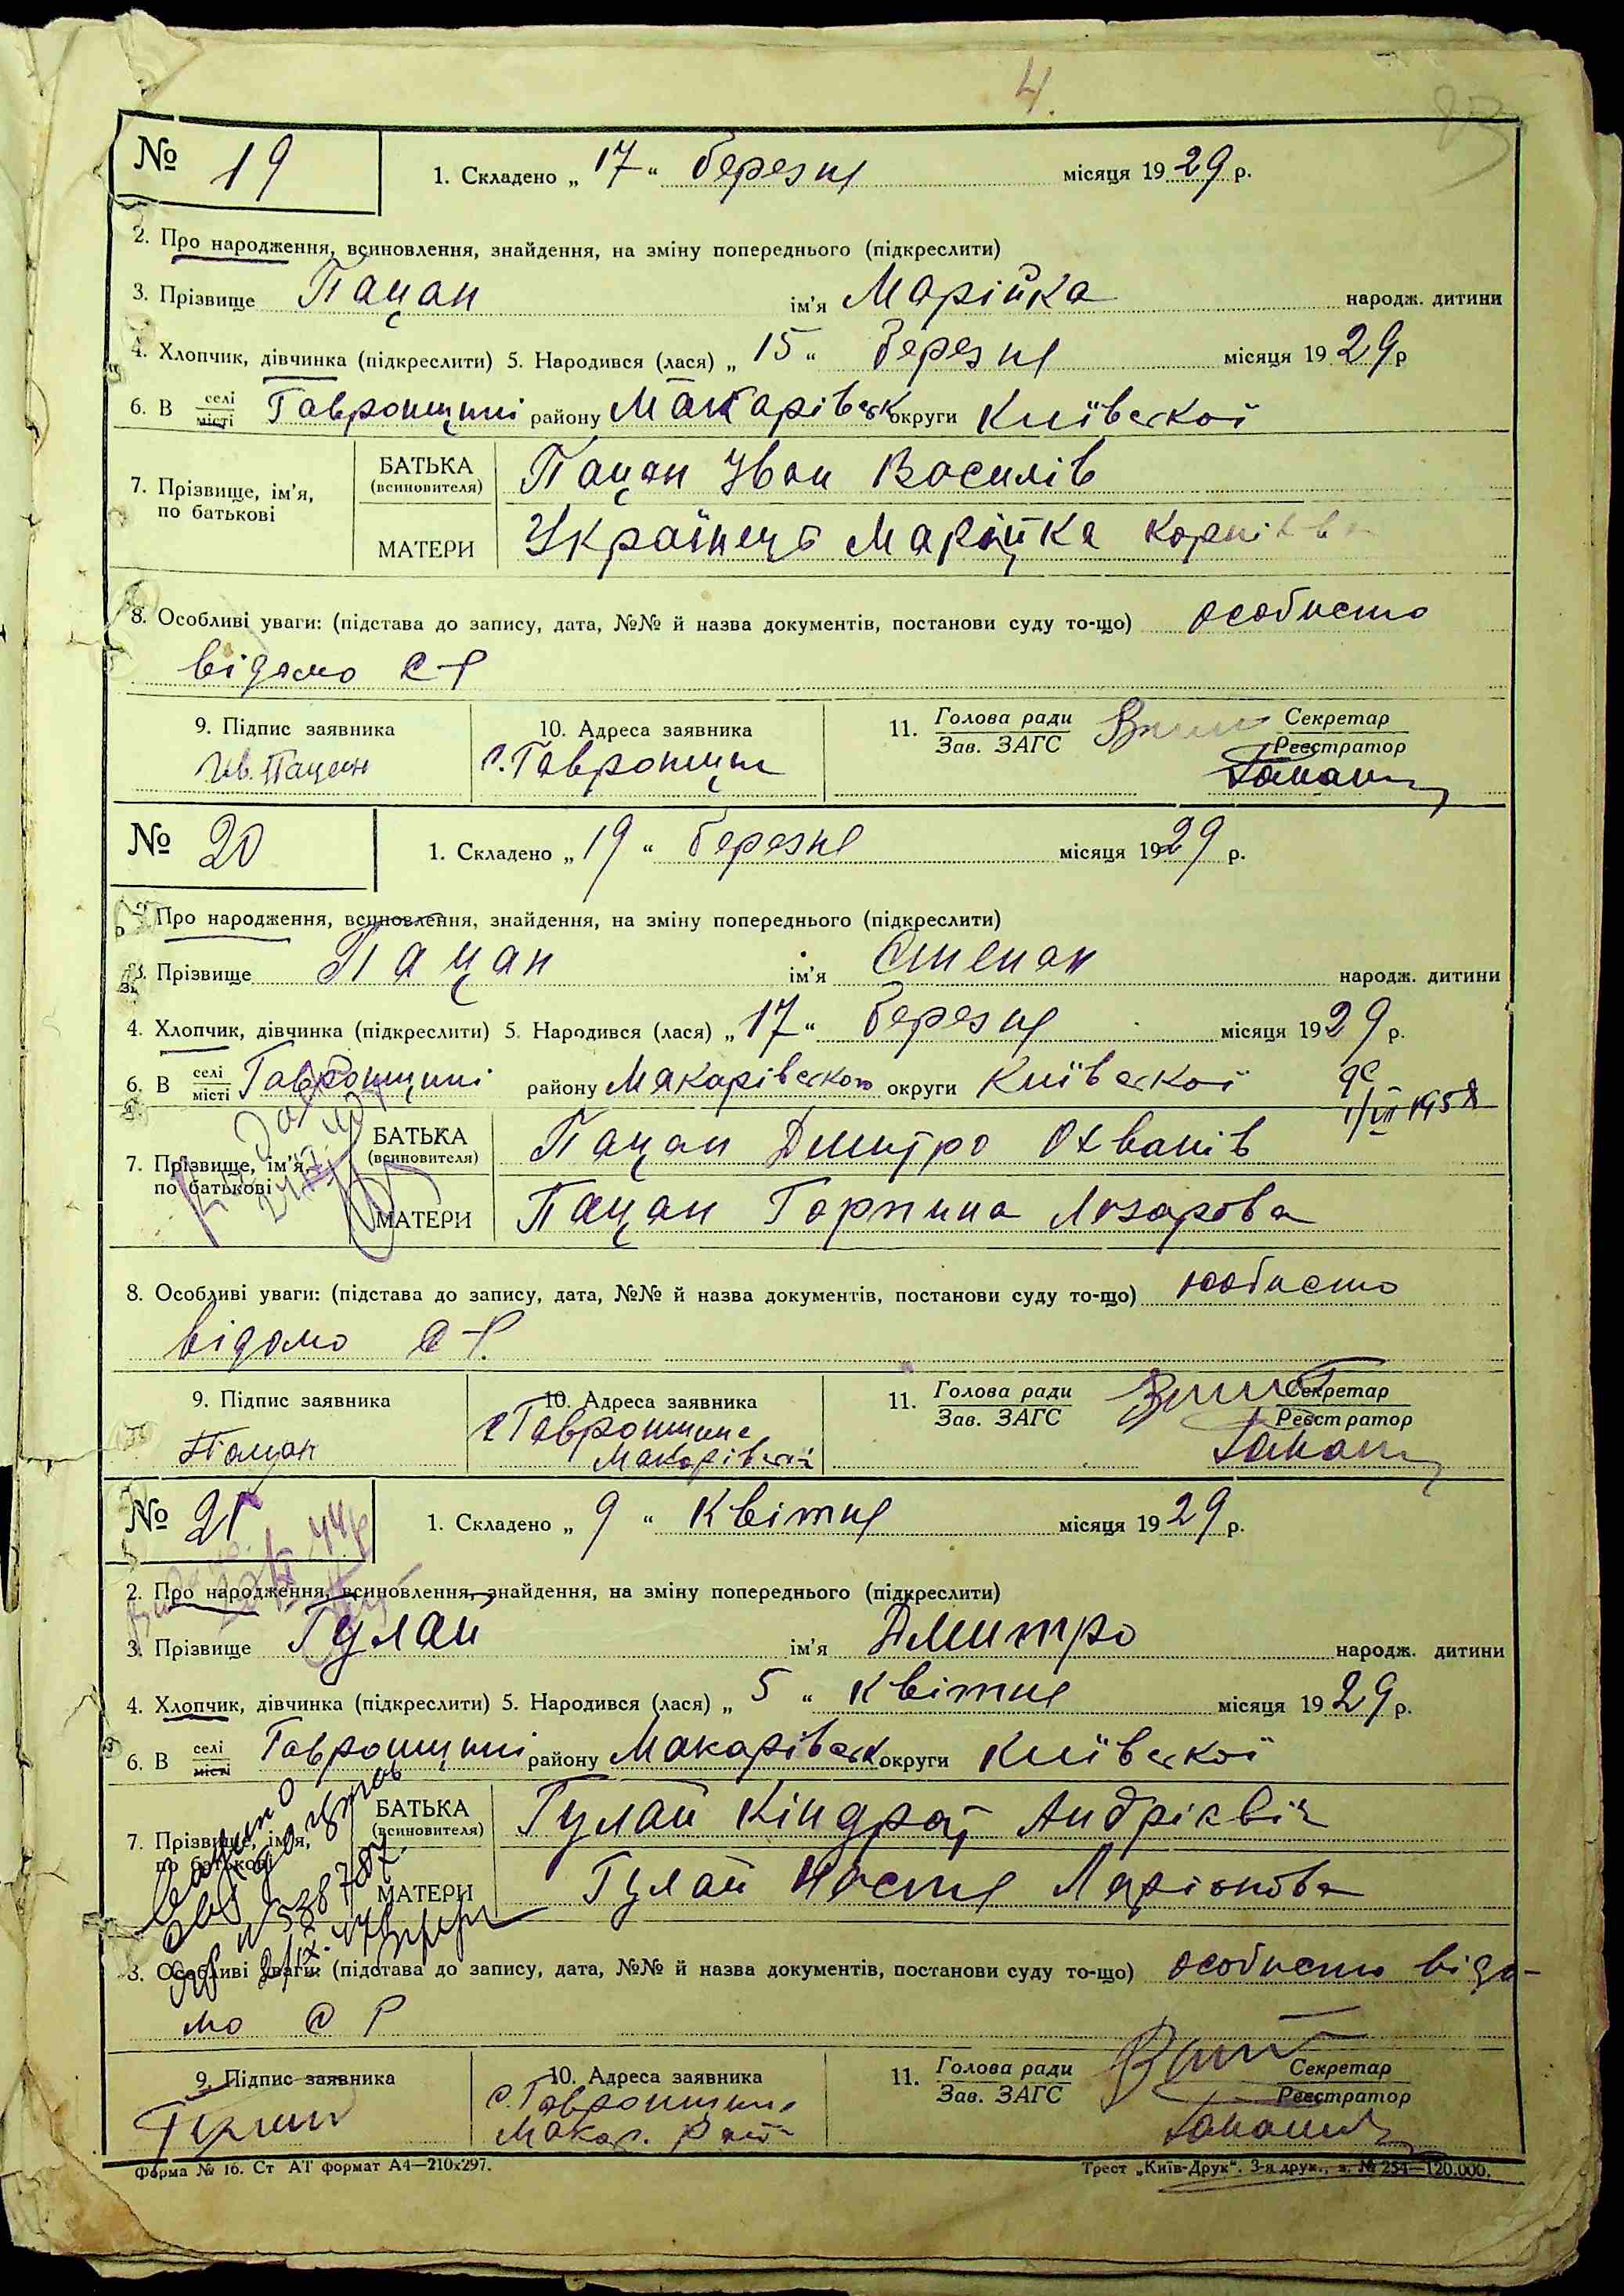 4.
83
№ 19
1. Складено „ 17 “ березня місяця 1929 р.
2. Про народження, всиновлення, знайдення, на зміну попереднього (підкреслити)
3. Прізвище Пацан ім'я Марійка народж. дитини
4. Хлопчик, дівчинка (підкреслити) 5. Народився (лася) „ 15 “ березня місяця 1929 р
6. В селі місті Гавронщині району Макарівськ округи Київської
7. Прізвище, ім'я, по батькові
БАТЬКА (всиновителя) Пацан Іван Василів
МАТЕРИ Українець Марійка
8. Особливі уваги: (підстава до запису, дата, №№ й назва документів, постанови суду то-що) особисто
відомо С-Р
9. Підпис заявника 10. Адреса заявника 11. Голова ради Зав. ЗАГС Секретар Реєстратор
Ів. Пацан с. Гавронщин
№ 20
1. Складено „ 19 “ березня місяця 1929 р.
Про народження, всиновлення, знайдення, на зміну попереднього (підкреслити)
3. Прізвище Пацан ім'я Степан народж. дитини
4. Хлопчик, дівчинка (підкреслити) 5. Народився (лася) „ 17 “ березня місяця 1929 р.
6. В селі місті Гавронщині району Макарівського округи Київської
1/VII 1958
7. Прізвище, ім'я, по батькові
БАТЬКА (всиновителя) Пацан Дмитро Охванів
МАТЕРИ Пацан Горпина Лазарова
8. Особливі уваги: (підстава до запису, дата, №№ й назва документів, постанови суду то-що) особисто
відомо С-Р.
9. Підпис заявника 10. Адреса заявника 11. Голова ради Зав. ЗАГС Секретар Реєстратор
Пацан с Гавронщина
Макарівській
№ 21
1. Складено „ 9 “ Квітня місяця 1929 р.
2. Про народження, всиновлення, знайдення, на зміну попереднього (підкреслити)
3. Прізвище Гулай ім'я Дмитро народж. дитини
4. Хлопчик, дівчинка (підкреслити) 5. Народився (лася) „ 5 “ квітня місяця 1929 р.
6. В селі місті Гавронщині району Макарівськ округи Київської
7. Прізвище, ім'я, по батькові
БАТЬКА (всиновителя) Гулай Кіндрат Андрієвіч
МАТЕРИ Гулай Настя Ларіонова
8. Особливі уваги: (підстава до запису, дата, №№ й назва документів, постанови суду то-що) особисто відо-
мо С Р
9. Підпис заявника 10. Адреса заявника 11. Голова ради Зав. ЗАГС Секретар Реєстратор
Гулай с. Гавронщина
Макар. рай-
Форма № 16. Ст АТ формат А4—210х297. Трест „Київ-Друк“. 3-я друк., з. № 254—120.000.